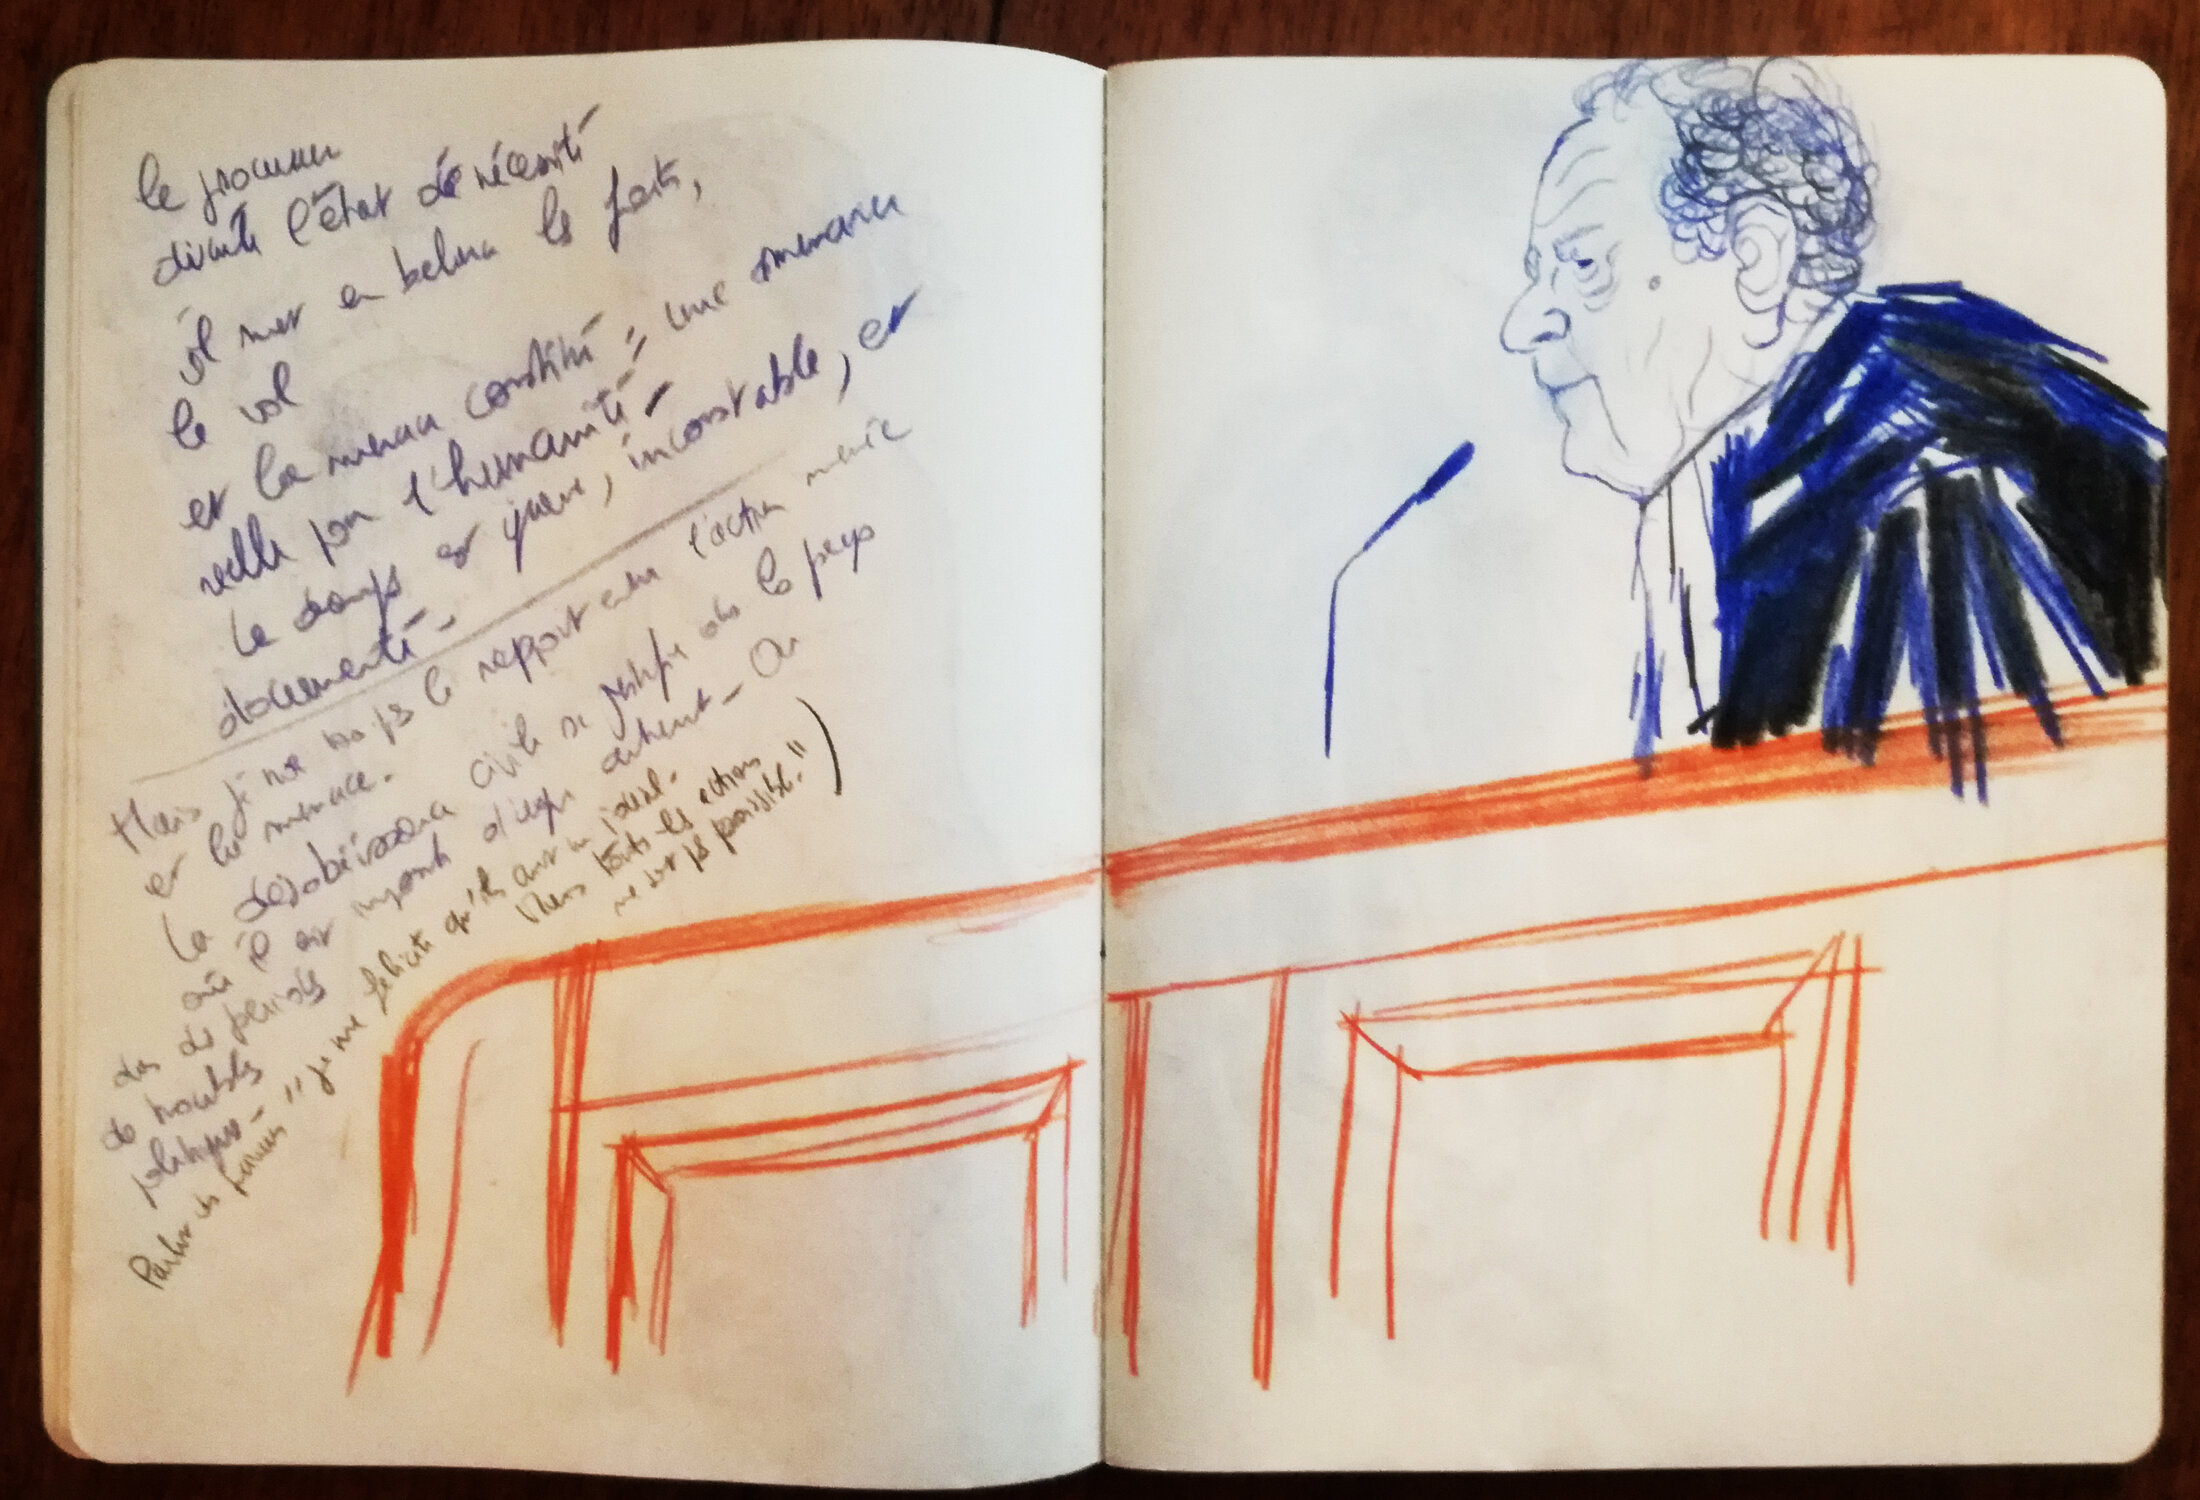 le procureur
discute l'état de nécessité
il met en balance les faits,
le vol
et la menace constitué = une menace
réelle pour l'humanité -
Le temps est grave, incontestable, et
documenté -
Mais je ne vois pas le rapport entre l'action menée
et la menace.
La désobéissance civile se justifie ds les pays
où il est
ds des périodes
de troubles
politiques - " je me félicite qu'ils aient un idéal.
Mais toutes les actions
ne sont pas possibles." )